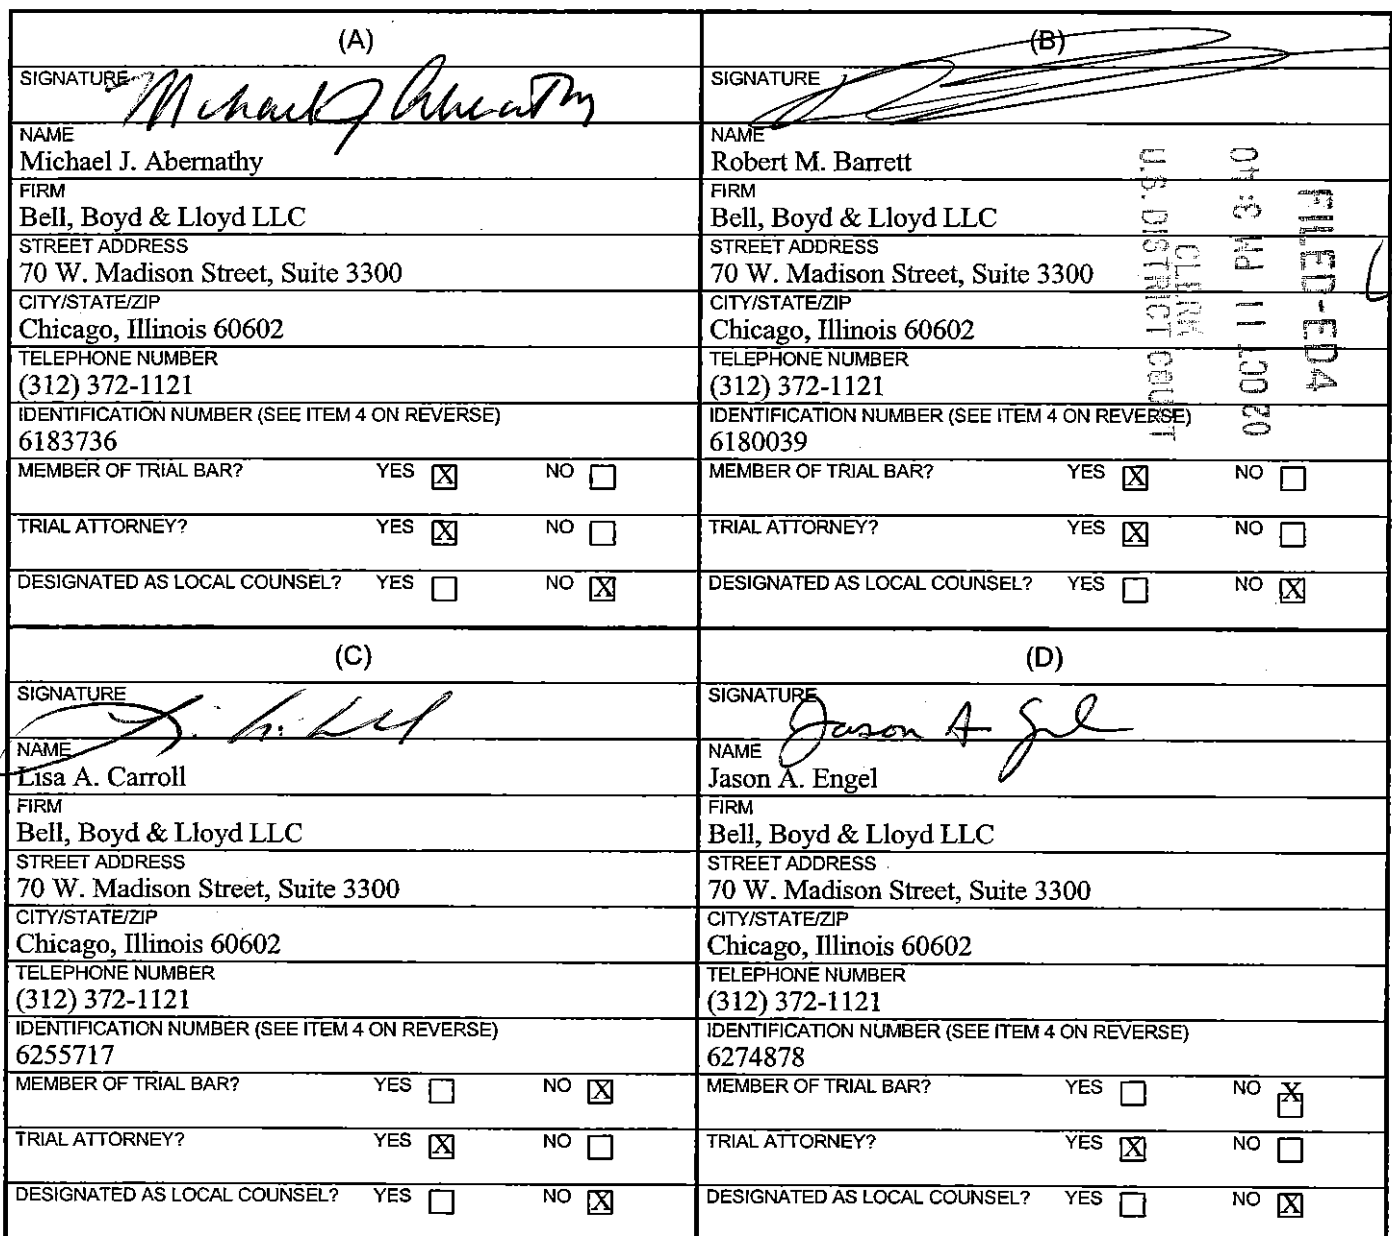 (A)
SIGNATURE
Michael J Abernathy
NAME
Michael J. Abernathy
FIRM
Bell, Boyd & Lloyd LLC
STREET ADDRESS
70 W. Madison Street, Suite 3300
CITY/STATE/ZIP
Chicago, Illinois 60602
TELEPHONE NUMBER
(312) 372-1121
IDENTIFICATION NUMBER (SEE ITEM 4 ON REVERSE)
6183736
MEMBER OF TRIAL BAR? YES X NO
TRIAL ATTORNEY? YES X NO
DESIGNATED AS LOCAL COUNSEL? YES NO X
(B)
SIGNATURE
NAME
Robert M. Barrett
FIRM
Bell, Boyd & Lloyd LLC
STREET ADDRESS
70 W. Madison Street, Suite 3300
CITY/STATE/ZIP
Chicago, Illinois 60602
TELEPHONE NUMBER
(312) 372-1121
IDENTIFICATION NUMBER (SEE ITEM 4 ON REVERSE)
6180039
MEMBER OF TRIAL BAR? YES X NO
TRIAL ATTORNEY? YES X NO
DESIGNATED AS LOCAL COUNSEL? YES NO X
FILED-ED4
CLERK
U.S. DISTRICT COURT
(C)
SIGNATURE
NAME
Lisa A. Carroll
FIRM
Bell, Boyd & Lloyd LLC
STREET ADDRESS
70 W. Madison Street, Suite 3300
CITY/STATE/ZIP
Chicago, Illinois 60602
TELEPHONE NUMBER
(312) 372-1121
IDENTIFICATION NUMBER (SEE ITEM 4 ON REVERSE)
6255717
MEMBER OF TRIAL BAR? YES NO X
TRIAL ATTORNEY? YES X NO
DESIGNATED AS LOCAL COUNSEL? YES NO X
(D)
SIGNATURE
Jason A Engel
NAME
Jason A. Engel
FIRM
Bell, Boyd & Lloyd LLC
STREET ADDRESS
70 W. Madison Street, Suite 3300
CITY/STATE/ZIP
Chicago, Illinois 60602
TELEPHONE NUMBER
(312) 372-1121
IDENTIFICATION NUMBER (SEE ITEM 4 ON REVERSE)
6274878
MEMBER OF TRIAL BAR? YES NO X
TRIAL ATTORNEY? YES X NO
DESIGNATED AS LOCAL COUNSEL? YES NO X